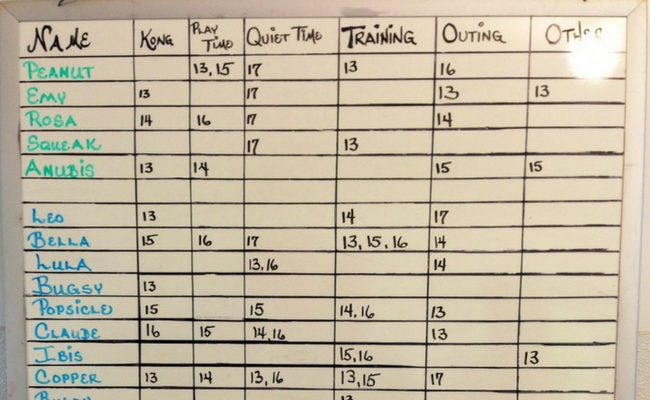 Name Kong Play Time Quiet Time Training Outing Other
Peanut 13, 15 17 13 16
Emy 13 17 13 13
Rosa 14 16 17 14
Squeak 17 13
Anubis 13 14 15 15
Leo 13 14 17
Bella 15 16 17 13, 15, 16 14
Lula 13, 16 14
Bugsy 13
Popsicle 15 15 14, 16 13
Claude 16 15 14, 16 13
Ibis 15, 16 13
Copper 13 14 13, 16 13, 15 17
13